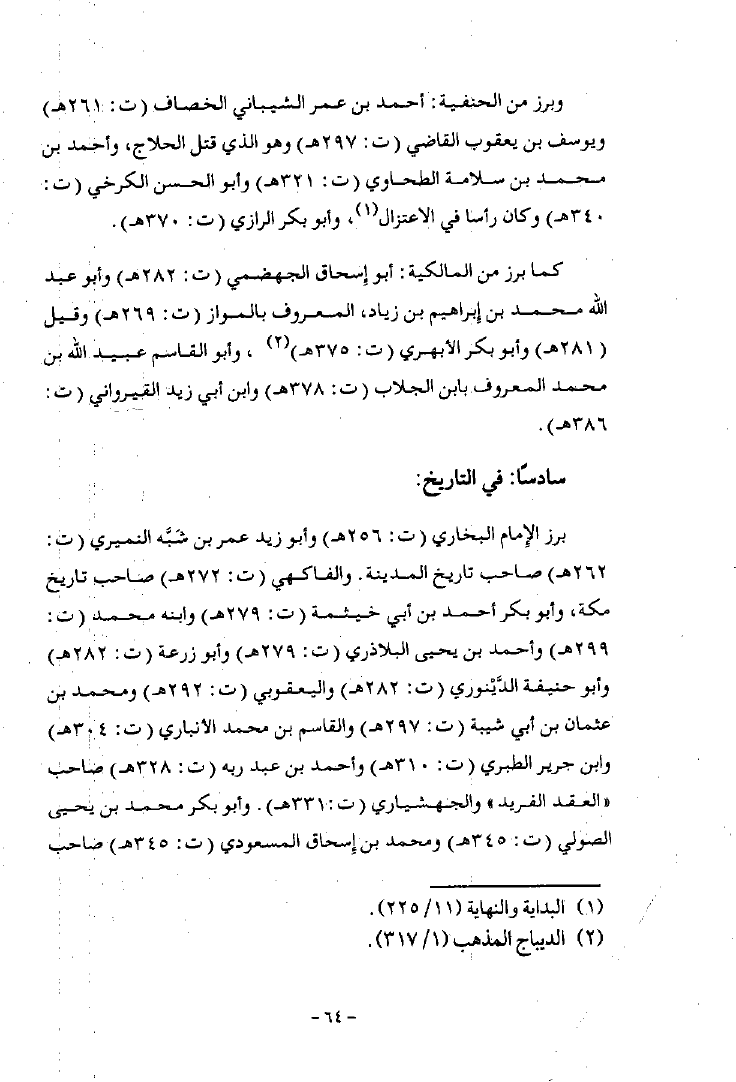 وبرز من الحنفية: أحمد بن عمر الشيباني الخصاف (ت: ٢٦١هـ)
ويوسف بن يعقوب القاضي (ت: ٢٩٧هـ) وهو الذي قتل الحلاج، وأحمد بن
محمد بن سلامة الطحاوي (ت: ٣٢١هـ) وأبو الحسن الكرخي (ت:
٣٤٠هـ) وكان رأسا في الاعتزال(١)، وأبو بكر الرازي (ت: ٣٧٠هـ).
كما برز من المالكية: أبو إسحاق الجهضمي (ت: ٢٨٢هـ) وأبو عبد
الله محمد بن إبراهيم بن زياد، المعروف بالمواز (ت: ٢٦٩هـ) وقيل
(٢٨١هـ) وأبو بكر الأبهري (ت: ٣٧٥هـ)(٢) ، وأبو القاسم عبيد الله بن
محمد المعروف بابن الجلاب (ت: ٣٧٨هـ) وابن أبي زيد القيرواني (ت:
٣٨٦هـ).
سادسًا: في التاريخ:
برز الإمام البخاري (ت: ٢٥٦هـ) وأبو زيد عمر بن شبَّه النميري (ت:
٢٦٢هـ) صاحب تاريخ المدينة. والفاكهي (ت: ٢٧٢هـ) صاحب تاريخ
مكة، وأبو بكر أحمد بن أبي خيثمة (ت: ٢٧٩هـ) وابنه محمد (ت:
٢٩٩هـ) وأحمد بن يحيى البلاذري (ت: ٢٧٩هـ) وأبو زرعة (ت: ٢٨٢هـ)
وأبو حنيفة الدَّيْنوري (ت: ٢٨٢هـ) واليعقوبي (ت: ٢٩٢هـ) ومحمد بن
عثمان بن أبي شيبة (ت: ٢٩٧هـ) والقاسم بن محمد الأنباري (ت: ٣٠٤هـ)
وابن جرير الطبري (ت: ٣١٠هـ) وأحمد بن عبد ربه (ت: ٣٢٨هـ) صاحب
«العقد الفريد» والجهشياري (ت:٣٣١هـ). وأبو بكر محمد بن يحيى
الصولي (ت: ٣٤٥هـ) ومحمد بن إسحاق المسعودي (ت: ٣٤٥هـ) صاحب
(١) البداية والنهاية (١١/ ٢٢٥).
(٢) الديباج المذهب (١/ ٣١٧).
- ٦٤ -